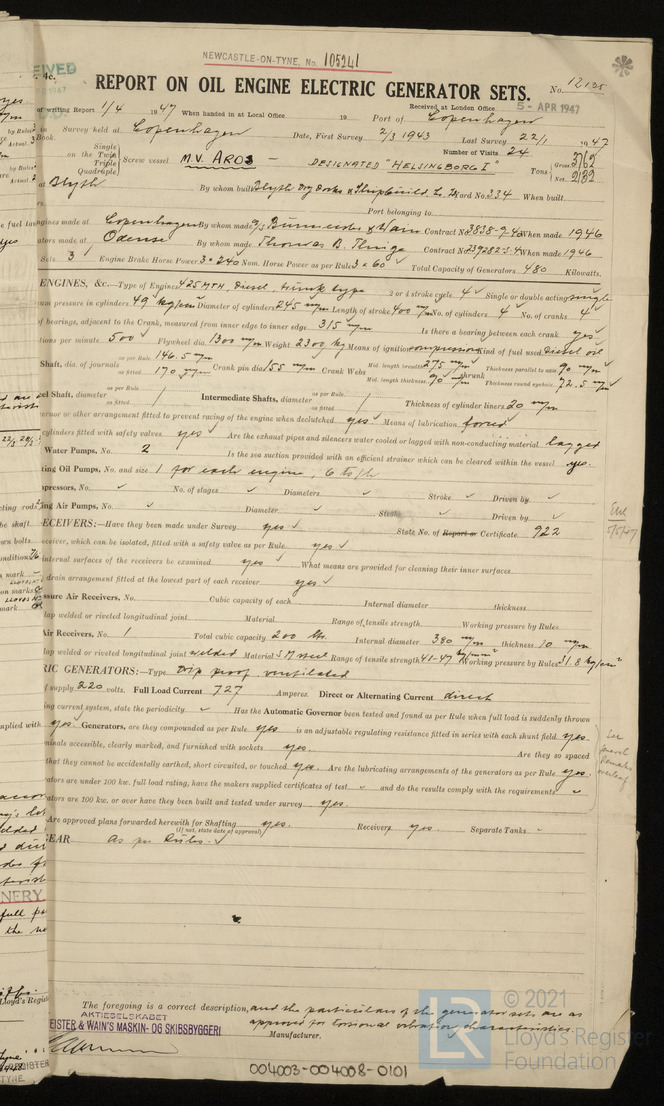 NEWCASTLE-ON-TYNE, No. 105241
4c.
REPORT ON OIL ENGINE ELECTRIC GENERATOR SETS.
No. 12135
Received at London Office 5 - APR 1947
of writing Report 1/4 1947 When handed in at Local Office 19 Port of Copenhagen
in Survey held at Copenhagen Date, First Survey 2/3 1943 Last Survey 22/1 1947
Number of Visits 24
on the Single Twin Triple Quadruple Screw vessel M.V. AROS – DESIGNATED "HELSINGBORG I" Tons Gross 3762 Net 2182
at Blyth By whom built Blyth Dry Docks & Shipbuild. Co. Yard No. 334 When built
Port belonging to
Engines made at Copenhagen By whom made A/S Burmeister & Wain Contract No. 3838-9-40 When made 1946
ators made at Odense By whom made Thomas B. Thrige Contract No. 239282-3-4 When made 1946
Sets 3 Engine Brake Horse Power 3 × 240 Nom. Horse Power as per Rule 3 × 60 Total Capacity of Generators 480 Kilowatts.
ENGINES, &c.—Type of Engine 425 MTH, Diesel, trunk type 2 or 4 stroke cycle 4 Single or double acting single
um pressure in cylinders 49 kg/cm² Diameter of cylinders 245 m/m Length of stroke 400 m/m No. of cylinders 4 No. of cranks 4
of bearings, adjacent to the Crank, measured from inner edge to inner edge 315 m/m Is there a bearing between each crank yes
tions per minute 500 Flywheel dia. 1300 m/m Weight 2300 kg Means of ignition compression Kind of fuel used Diesel oil
Shaft, dia. of journals as per Rule 146.5 m/m as fitted 170 m/m Crank pin dia 155 m/m Crank Webs Mid. length breadth 275 m/m Mid. length thickness 90 m/m shrunk Thickness parallel to axis 90 m/m Thickness round eyehole 72.5 m/m
eel Shaft, diameter as per Rule as fitted Intermediate Shafts, diameter as per Rule as fitted Thickness of cylinder liners 20 m/m
vernor or other arrangement fitted to prevent racing of the engine when declutched yes Means of lubrication forced
cylinders fitted with safety valves yes Are the exhaust pipes and silencers water cooled or lagged with non-conducting material lagged
Water Pumps, No. 2 Is the sea suction provided with an efficient strainer which can be cleared within the vessel yes.
ting Oil Pumps, No. and size 1 for each engine, 6 to/h
mpressors, No. No. of stages Diameters Stroke Driven by
ing Air Pumps, No. Diameter Stroke Driven by
ECEIVERS:—Have they been made under Survey yes State No. of Report or Certificate 922
ceiver, which can be isolated, fitted with a safety valve as per Rule yes
internal surfaces of the receivers be examined yes What means are provided for cleaning their inner surfaces
drain arrangement fitted at the lowest part of each receiver yes
ssure Air Receivers, No. Cubic capacity of each Internal diameter thickness
lap welded or riveted longitudinal joint Material Range of tensile strength Working pressure by Rules
Air Receivers, No. 1 Total cubic capacity 200 lts. Internal diameter 380 m/m thickness 10 m/m
lap welded or riveted longitudinal joint welded Material S.M. steel Range of tensile strength 41-47 kg/mm² Working pressure by Rules 31.8 kg/cm²
RIC GENERATORS:—Type Drip proof ventilated
supply 220 volts. Full Load Current 727 Amperes. Direct or Alternating Current direct
ing current system, state the periodicity Has the Automatic Governor been tested and found as per Rule when full load is suddenly thrown
yes. Generators, are they compounded as per Rule yes is an adjustable regulating resistance fitted in series with each shunt field yes.
minals accessible, clearly marked, and furnished with sockets yes. Are they so spaced
that they cannot be accidentally earthed, short circuited, or touched yes. Are the lubricating arrangements of the generators as per Rule yes.
ators are under 100 kw. full load rating, have the makers supplied certificates of test and do the results comply with the requirements
ators are 100 kw. or over have they been built and tested under survey yes.
See general Remarks overleaf
Are approved plans forwarded herewith for Shafting yes. Receivers yes. Separate Tanks
(If not, state date of approval)
EAR As per Rules.
The foregoing is a correct description, and the particulars of the generator sets are as
approved for torsional vibration characteristics.
AKTIESELSKABET
EISTER & WAIN'S MASKIN- OG SKIBSBYGGERI
Manufacturer.
004003-004008-0101
© 2021
Lloyd's Register
Foundation